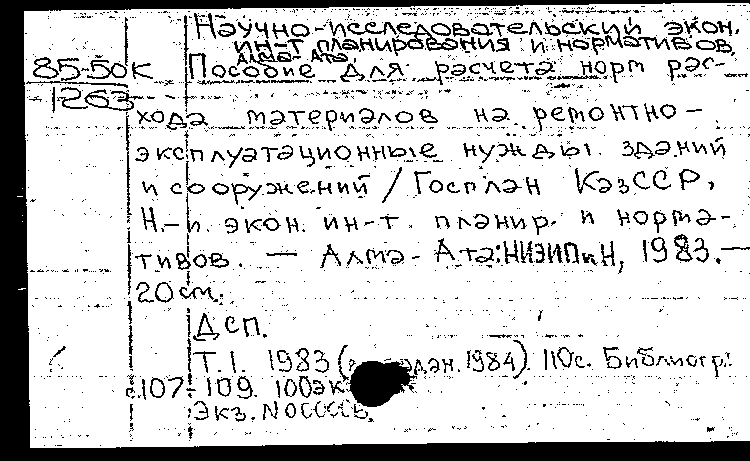 Научно-исследовательский экон.
ин-т планирования и нормативов,
Алма-Ата.
85-50к Пособие для расчета норм рас-
1263
хода материалов на ремонтно-
эксплуатационные нужды зданий
и сооружений / Госплан КазССР,
Н.-и. экон. ин-т. планир. и норма-
тивов. — Алма-Ата: НИЭИПиН, 1983. —
20 см.
ДСП.
Т.1. 1983 ( 1984). 110с. Библиогр.:
с.107-109. 100эк
Экз. N